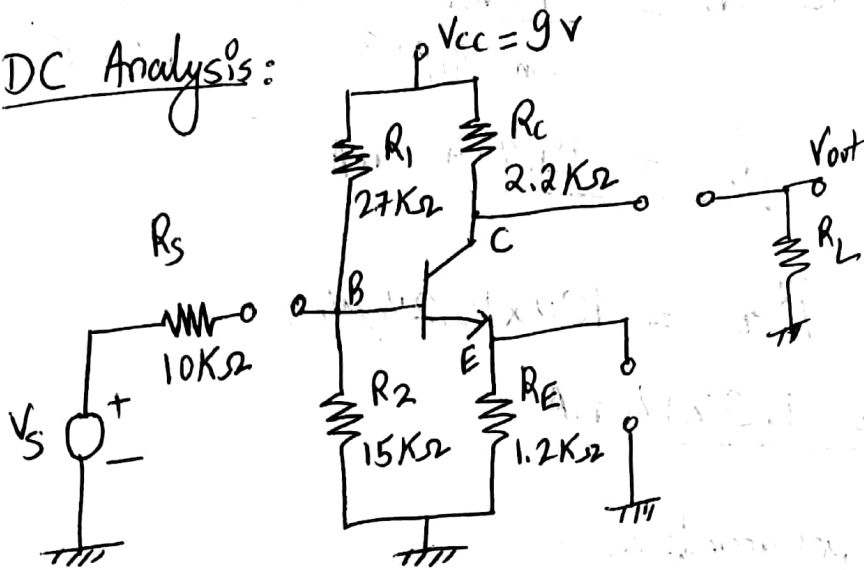 DC Analysis:
Vcc = 9V
R1
27KΩ
Rc
2.2KΩ
Vout
RL
Rs
10KΩ
B
C
E
Vs
+
-
R2
15KΩ
RE
1.2KΩ